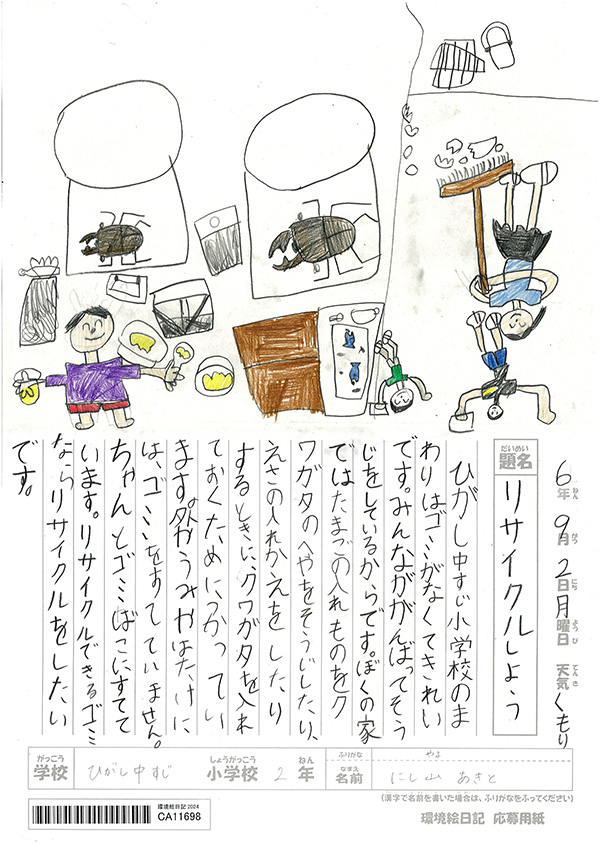 6年9月2日月曜日 天気くもり
ねん
がつ
にち
ようび
てんき
だいめい
題名
リサイクルしよう
ひがし中すじ小学校のま
わりはゴミがなくてきれい
です。みんながんばってそう
じをしているからです。ぼくの家
ではたまごの入れものをク
ワガタのへやをそうじしたり、
えさの入れかえをしたり
するときに、クワガタを入れ
ておくためにつかってい
ます。外がうみやはたけに
は、ゴミをすてていません。
ちゃんとゴミばこにすてて
います。リサイクルできるゴミ
ならリサイクルをしたい
です。
がっこう
学校
ひがし中すじ
しょうがっこう
小学校
2
ねん
年
ふりがな
やま
なまえ
名前
にし山 あきと
(漢字で名前を書いた場合は、ふりがなをふってください)
環境絵日記 2024
CA11698
環境絵日記 応募用紙